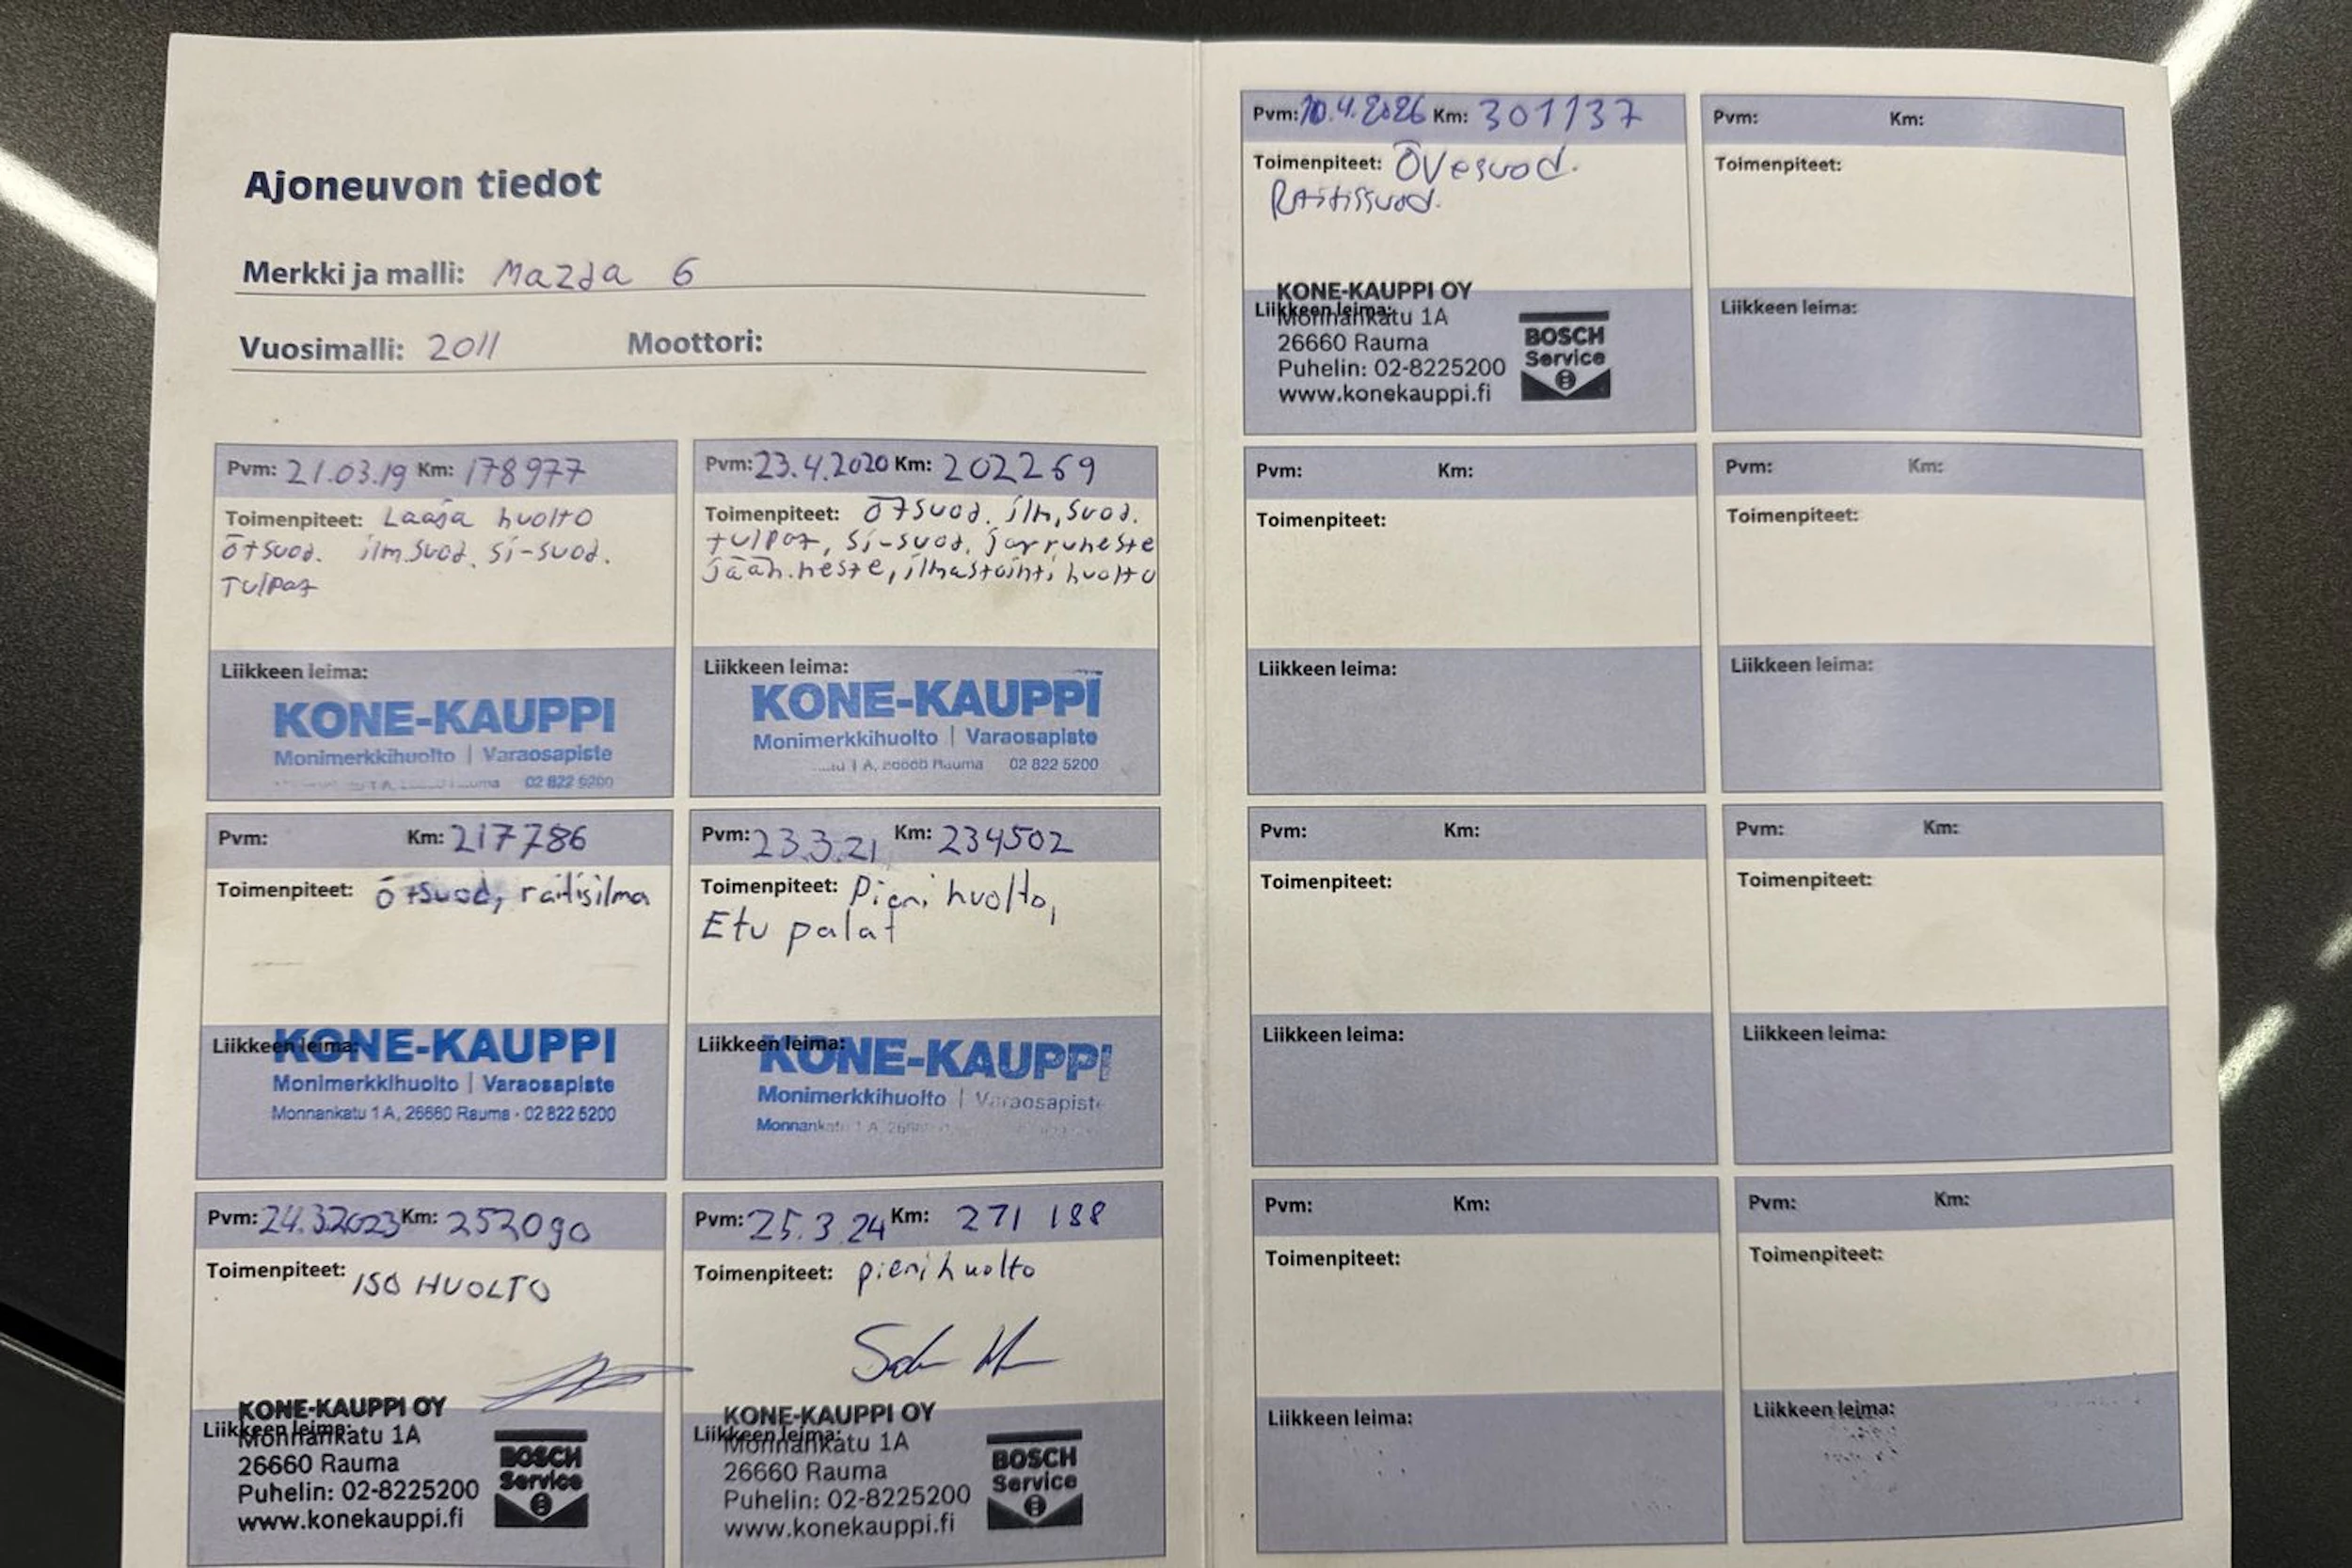 Ajoneuvon tiedot
Merkki ja malli: Mazda 6
Vuosimalli: 2011 Moottori:
Pvm: 21.03.19 Km: 178977
Toimenpiteet: Laaja huolto
ötsuod. ilm.suod. si-suod.
Tulpat
Liikkeen leima:
KONE-KAUPPI
Monimerkkihuolto | Varaosapiste
02 822 5200
Pvm: 23.4.2020 Km: 202269
Toimenpiteet: ötsuod. ilm.suod.
tulpat, si-suod. jarruneste
jääh.neste, ilmastointi huolto
Liikkeen leima:
KONE-KAUPPI
Monimerkkihuolto | Varaosapiste
1 A, 26660 Rauma 02 822 5200
Pvm: Km: 217786
Toimenpiteet: ötsuod, raitisilma
Liikkeen leima:
KONE-KAUPPI
Monimerkkihuolto | Varaosapiste
Monnankatu 1 A, 26660 Rauma - 02 822 5200
Pvm: 23.3.21 Km: 234502
Toimenpiteet: Pieni huolto,
Etu palat
Liikkeen leima:
KONE-KAUPPI
Monimerkkihuolto | Varaosapiste
Monnankatu 1 A,
Pvm: 24.3.2023 Km: 252090
Toimenpiteet: ISO HUOLTO
KONE-KAUPPI OY
Liikkeen leima:
Monnankatu 1A
26660 Rauma
Puhelin: 02-8225200
www.konekauppi.fi
BOSCH
Service
Pvm: 25.3.24 Km: 271 188
Toimenpiteet: pieni huolto
KONE-KAUPPI OY
Liikkeen leima:
Monnankatu 1A
26660 Rauma
Puhelin: 02-8225200
www.konekauppi.fi
BOSCH
Service
Pvm: 10.4.2026 Km: 301137
Toimenpiteet: Övesuod.
Raitissuod.
KONE-KAUPPI OY
Liikkeen leima:
Monnankatu 1A
26660 Rauma
Puhelin: 02-8225200
www.konekauppi.fi
BOSCH
Service
Pvm: Km:
Toimenpiteet:
Liikkeen leima:
Pvm: Km:
Toimenpiteet:
Liikkeen leima:
Pvm: Km:
Toimenpiteet:
Liikkeen leima:
Pvm: Km:
Toimenpiteet:
Liikkeen leima:
Pvm: Km:
Toimenpiteet:
Liikkeen leima:
Pvm: Km:
Toimenpiteet:
Liikkeen leima:
Pvm: Km:
Toimenpiteet:
Liikkeen leima: